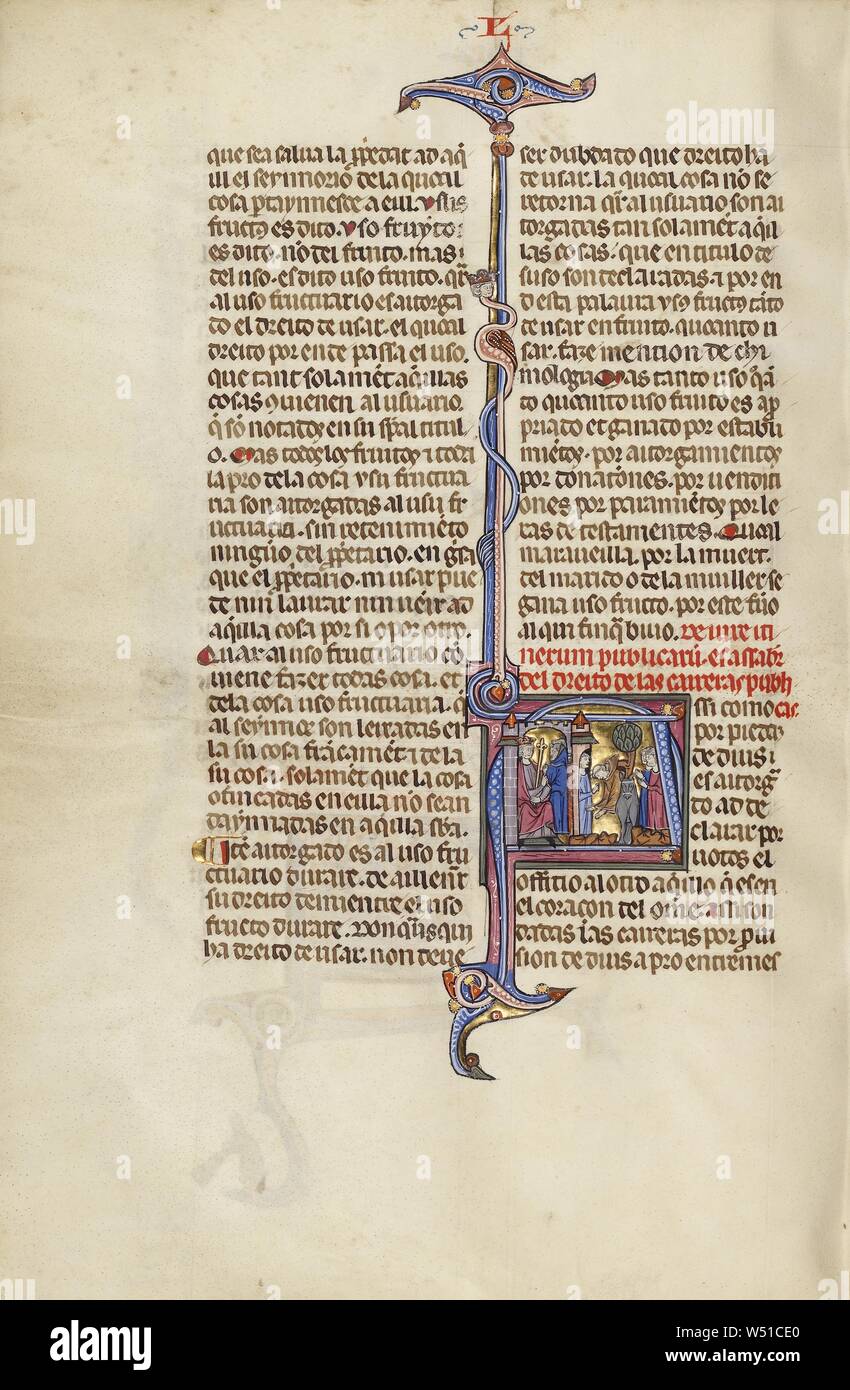 L
que sea salua la ꝓpiedat ad aq̃
ill el seynnorio de la quoal
cosa ꝑtaynnesce a eill. vsus
fructus es dito. vso fruyto:
es dito. nõ del fruito. mas
del uso. es dito uso fruito. q̃r
al uso fructuario es autorga
do el dreito de usar. el quoal
dreito por ende passa el uso.
que tant solamẽt aq̃illas
cosas ꝯuienen al usuario.
q̃ sõ notados en su sp̃al titul
o. Mas todos los fruitos ⁊ toda
la pro de la cosa vsu fructua
ria son autorgadas al usu fr
uctuario. sin retenimiẽto
ningũo del ꝓpietario. en gisa
que el ꝓpietário. ni usar pue
de nin laurar nin uenir ad
aq̃illa cosa por si o por otro.
Quar al uso fructuario cõ
uiene fazer todas cosas. et
de la cosa usu fructuaria. q̃
al seynnor son leixadas en
la su cosa frãcamẽt ⁊ de la
su cosa. solamẽt que la cosa
o ficadas en eilla nõ sean
daynnadas en aquilla
Itẽ autorgado es al uso fru
ctuario durare. de
su dreito demientre el uso
fructo durare. Don q̃l se quis
ha dreito de usar. non deue
ser dubdado que dreito ha
de usar. la quoal cosa nõ se
retorna q̃r al usuario son au
torgadas tan solamẽt aq̃ll
las cosas. que en titulo de
suso son declaradas. ⁊ por en
d esta palaura vsus fructus tãto
de usar en fruito. quoanto u
sar. faze mention de thi
mologia Mas tanto uso q̃a
to quoanto uso fruito es apr
priado et ganado por establi
mientos. por autorgamientos
por donatiões. por uenditi
ones por paramiẽtos por le
xas de testamentes. Quoal
marauieilla. por la muert.
del marido o de la muiller se
gana uso fructo. por este fuero
al qui finq̃ biuo. De iure iti
nerum publicarũ. es assaber
del dreito de las carreras publi
cas.
ssi como
por piedes
de diuisi
es autorg̃
do ad de
clarar por
uotos el
offitio al otro aquilo q̃ es en
el coraçon del ome assi son
dadas las carreras por ꝓui
sion de diuis a pro entremes
alamy
Image ID: W51CE0
www.alamy.com